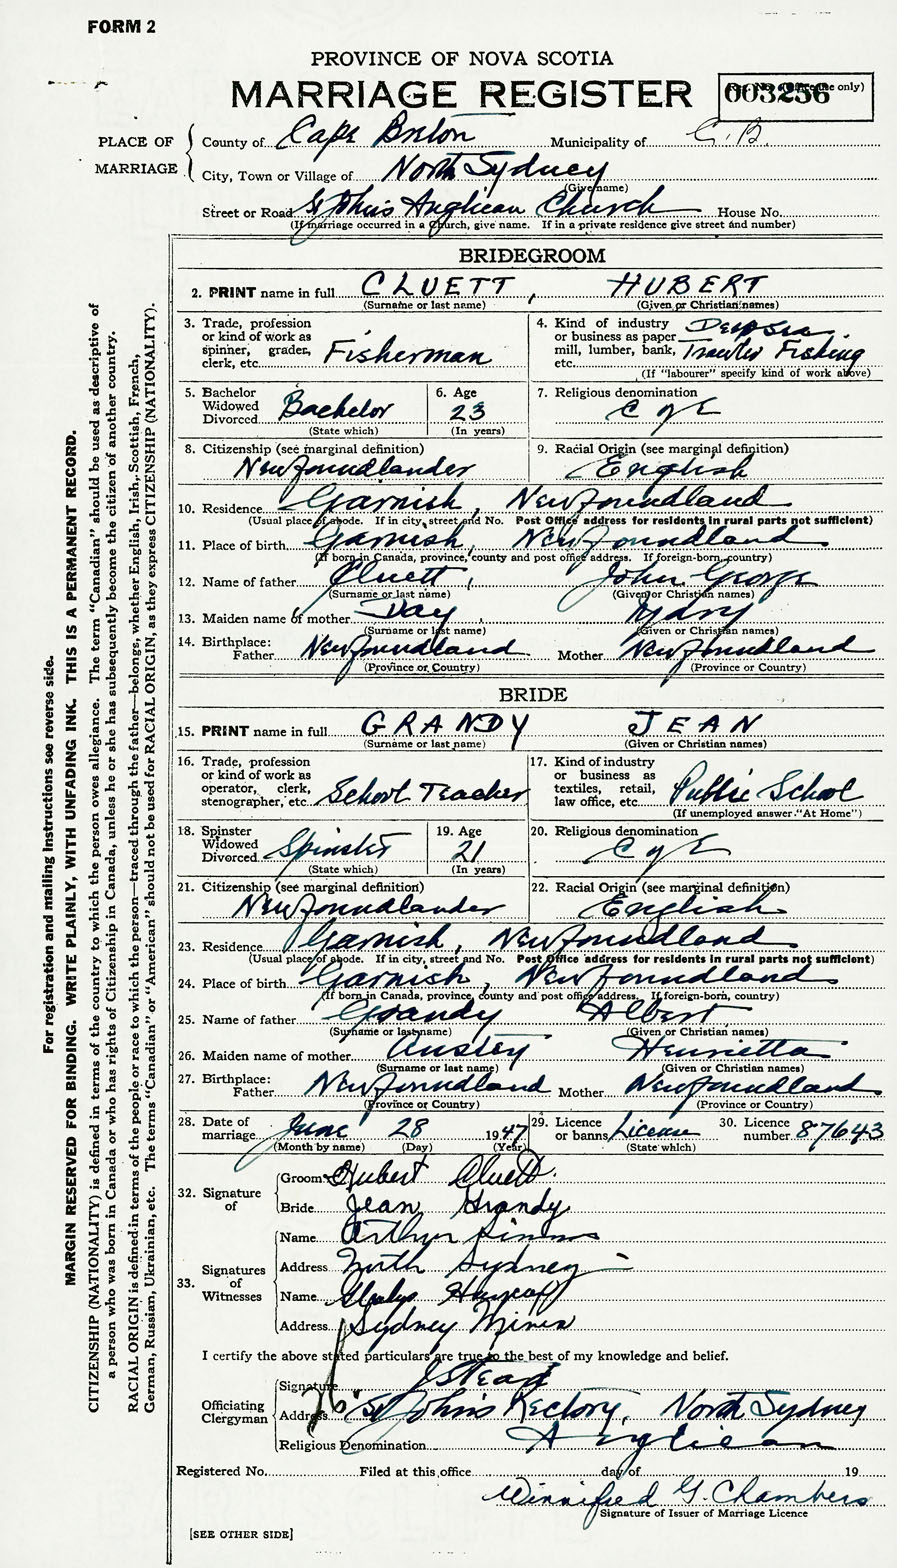 FORM 2
PROVINCE OF NOVA SCOTIA
MARRIAGE REGISTER
003256
use only)
PLACE OF MARRIAGE
County of Cape Breton Municipality of C.B.
City, Town or Village of North Sydney
(Give name)
Street or Road St John's Anglican Church House No.
(If marriage occurred in a Church, give name. If in a private residence give street and number)
BRIDEGROOM
2. PRINT name in full CLUETT, HUBERT
(Surname or last name) (Given or Christian names)
3. Trade, profession or kind of work as spinner, grader, clerk, etc. Fisherman
4. Kind of industry or business as paper mill, lumber, bank, etc. Deep sea Trawler Fishing
(If "labourer" specify kind of work above)
5. Bachelor Widowed Divorced Bachelor
(State which)
6. Age 23
(In years)
7. Religious denomination C of E
8. Citizenship (see marginal definition) Newfoundlander
9. Racial Origin (see marginal definition) English
10. Residence Garnish, Newfoundland
(Usual place of abode. If in city, street and No. Post Office address for residents in rural parts not sufficient)
11. Place of birth Garnish, Newfoundland
(If born in Canada, province, county and post office address. If foreign-born, country)
12. Name of father Cluett, John George
(Surname or last name) (Given or Christian names)
13. Maiden name of mother Day, Mary
(Surname or last name) (Given or Christian names)
14. Birthplace: Father Newfoundland Mother Newfoundland
(Province or Country) (Province or Country)
BRIDE
15. PRINT name in full GRANDY JEAN
(Surname or last name) (Given or Christian names)
16. Trade, profession or kind of work as operator, clerk, stenographer, etc. School Teacher
17. Kind of industry or business as textiles, retail, law office, etc. Public School
(If unemployed answer "At Home")
18. Spinster Widowed Divorced Spinster
(State which)
19. Age 21
(In years)
20. Religious denomination C of E
21. Citizenship (see marginal definition) Newfoundlander
22. Racial Origin (see marginal definition) English
23. Residence Garnish, Newfoundland
(Usual place of abode. If in city, street and No. Post Office address for residents in rural parts not sufficient)
24. Place of birth Garnish, Newfoundland
(If born in Canada, province, county and post office address. If foreign-born, country)
25. Name of father Grandy Albert
(Surname or last name) (Given or Christian names)
26. Maiden name of mother Anstey Henrietta
(Surname or last name) (Given or Christian names)
27. Birthplace: Father Newfoundland Mother Newfoundland
(Province or Country) (Province or Country)
28. Date of marriage June 28 1947
(Month by name) (Day) (Year)
29. Licence or banns License
(State which)
30. Licence number 87643
32. Signature of
Groom Hubert Cluett
Bride Jean Grandy
33. Signatures of Witnesses
Name Arthur Simms
Address North Sydney
Name Gladys
Address Sydney Mines
I certify the above stated particulars are true to the best of my knowledge and belief.
Officiating Clergyman
Signature
Address St John's Rectory, North Sydney
Religious Denomination Anglican
Registered No. Filed at this office day of 19
Winnifred G. Chambers
Signature of Issuer of Marriage Licence
[SEE OTHER SIDE]
For registration and mailing instructions see reverse side.
MARGIN RESERVED FOR BINDING. WRITE PLAINLY, WITH UNFADING INK. THIS IS A PERMANENT RECORD.
CITIZENSHIP (NATIONALITY) is defined in terms of the country to which the person owes allegiance. The term "Canadian" should be used as descriptive of
a person who was born in Canada or who has rights of Citizenship in Canada, unless he or she has subsequently become the citizen of another country.
RACIAL ORIGIN is defined in terms of the people or race to which the person—traced through the father—belongs, whether English, Irish, Scottish, French,
German, Russian, Ukrainian, etc. The terms "Canadian" or "American" should not be used for RACIAL ORIGIN, as they express CITIZENSHIP (NATIONALITY).